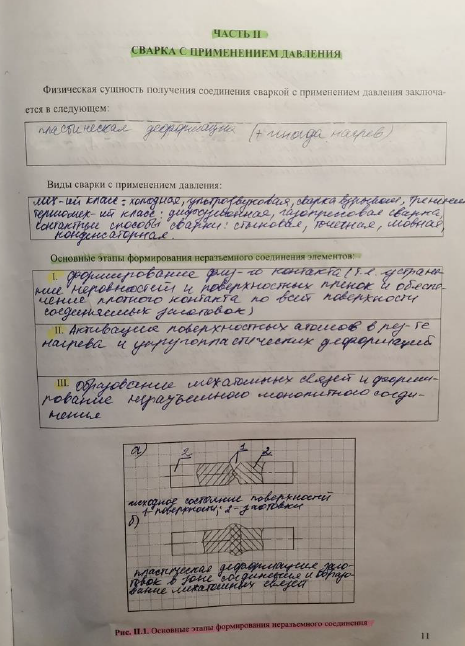 ЧАСТЬ II
СВАРКА С ПРИМЕНЕНИЕМ ДАВЛЕНИЯ
Физическая сущность получения соединения сваркой с применением давления заключа-
ется в следующем:
пластическая деформация (+ иногда нагрев)
Виды сварки с применением давления:
мех-ий класс: холодная, ультразвуковая, сварка взрывом, трением
термомех-ий класс: диффузионная, газопрессовая сварка,
контактные способы сварки: стыковая, точечная, шовная,
конденсаторная.
Основные этапы формирования неразъемного соединения элементов:
I. формирование физ-го контакта (т.е. устране-
ние неровностей и поверхностных пленок и обеспе-
чение плотного контакта по всей поверхности
соединяемых заготовок)
II. Активация поверхностных атомов в рез-те
нагрева и упругопластических деформаций
III. Образование межатомных связей и форми-
рование неразъемного монолитного соеди-
нения
а)
2 1 2
исходное состояние поверхностей
1-поверхности; 2-заготовки
б)
пластическая деформация заго-
товок в зоне соединения и образо-
вание межатомных связей
Рис. II.1. Основные этапы формирования неразъемного соединения
11